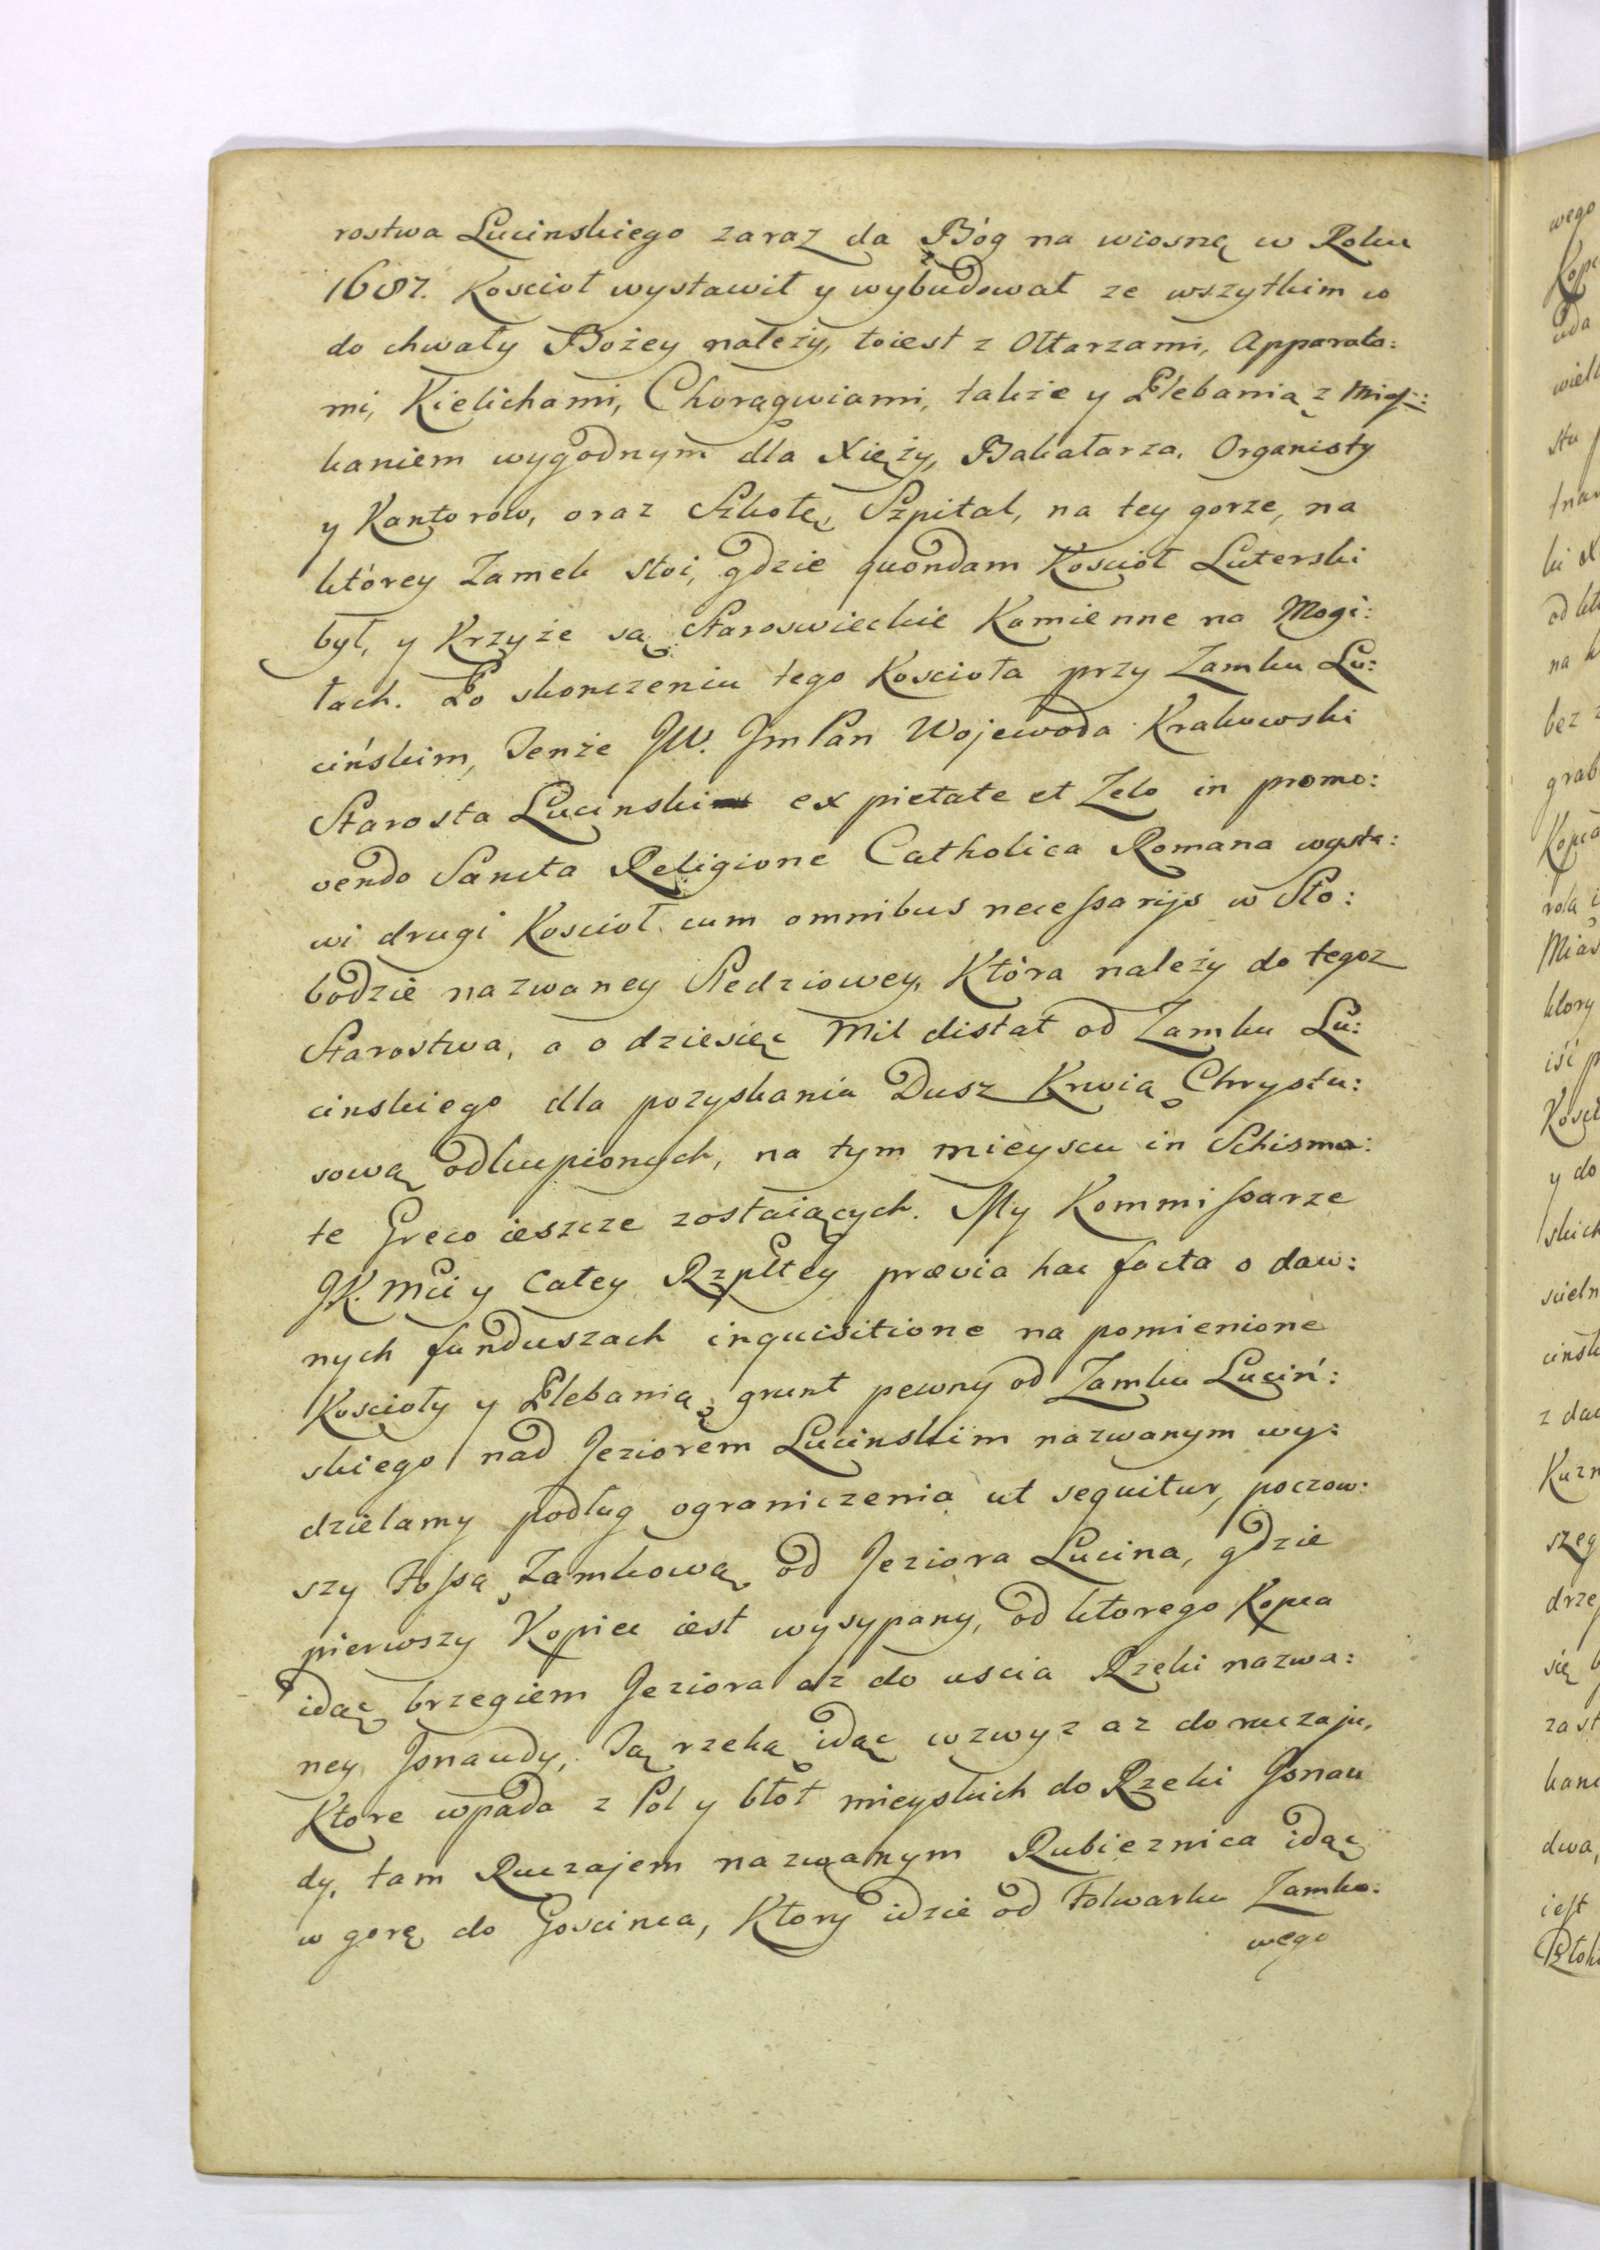 rostwa Lucinskiego zaraz da Bóg na wiosnę w Roku
1687. Koscioł wystawił y wybudował ze wszytkim co
do chwały Bożey należy, toiest z Ołtarzami, Apparata:
mi, Kielichami, Chorągwiami, także y Plebanią z Miesz:
kaniem wygodnym dla Xięży, Bakałarza, Organisty
y Kantorow, oraz Szkołę, Szpital, na tey gorze, na
którey Zamek stoi, gdzie quondam Kosciół Luterski
był, y Krzyże są Staroswieckie Kamienne na Mogi:
łach. Po skonczeniu tego Kościoła przy Zamku Lu:
cińskim, Tenże JW. JmPan Wojewoda Krakowski
Starosta Lucinski ex pietate et Zelo in promo:
vendo Sancta Religione Catholica Romana wysta:
wi drugi Kościoł cum omnibus necessarijs w Sło:
bodzie nazwaney Sledziowey, Która należy do tegoz
Starostwa, a o dziesięc Mil distat od Zamku Lu:
cinskiego dla pozyskania Dusz Krwią Chrystu:
sową odkupionych, na tym mieyscu in Schisma:
te Greco ieszcze zostaiących. My Kommissarze
JK. Mci y Całey Rzpltey prævia hac facta o daw:
nych funduszach inquisitione na pomienione
Koscioły y Plebanią grunt pewny od Zamku Luciń:
skiego nad Jeziorem Lucinskim nazwanym wy:
dzielamy podług ograniczenia ut sequitur, poczow:
szy Fossą Zamkową od Jeziora Lucina, gdzie
pierwszy Kopiec iest wysypany, od ktorego Kopca
idąc brzegiem Jeziora az do uscia Rzeki nazwa:
ney Jsnaudy, Tą rzeką idąc wzwyz az do ruczaju,
Ktore wpada z Pol y błót mieyskich do Rzeki Jsnau
dy, tam Ruczajem nazwanym Rubieznica idąc
w gorę do Goscinca, Ktory idzie od Folwarku Zamko:
wego